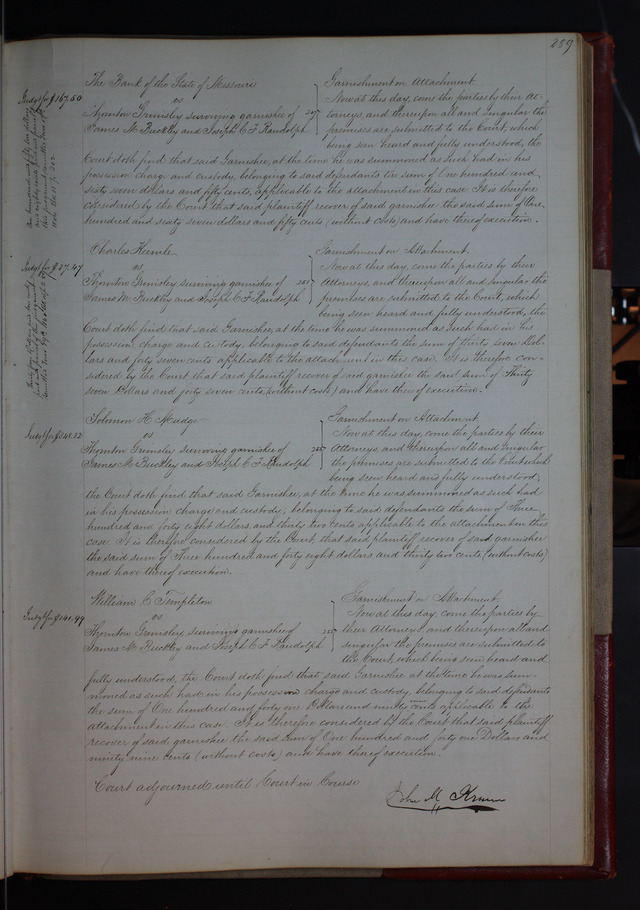 289
The Bank of the State of Missouri
vs
Thornton Grimsley surviving garnishee of
James M. Buckley and Joseph C. F. Randolph
Judgt for $167.50
Garnishment on Attachment
Now at this day, come the parties by their At-
torneys, and thereupon all and singular the
premises are submitted to the Court, which
being seen heard and fully understood, the
Court doth find that said Garnishee, at the time he was summoned as such had in his
possession charge and custody, belonging to said defendants the sum of One hundred and
sixty seven dollars and fifty cents, applicable to the attachment in this case. It is therefore
considered by the Court that said plaintiff recover of said garnishee the said sum of One
hundred and sixty seven dollars and fifty cents (without costs) and have thereof execution.
Charles Keemle
vs
Thornton Grimsley surviving garnishee of
James M. Buckley and Joseph C. F. Randolph
Judgt for $37.47
Garnishment on Attachment.
Now at this day, come the parties by their
Attorneys, and thereupon all and singular the
premises are submitted to the Court, which
being seen heard and fully understood, the
Court doth find that said Garnishee, at the time he was summoned as such had in his
possession charge and custody, belonging to said defendants the sum of thirty seven Dol-
lars and forty seven cents applicable to the attachment in this case. It is therefore con-
sidered by the Court that said plaintiff recover of said garnishee the said sum of Thirty
seven Dollars and forty seven cents (without costs) and have thereof execution.
Solomon H. Mudge
vs
Thornton Grimsley surviving garnishee of
James M. Buckley and Joseph C. F. Randolph
Judgt for $348.32
Garnishment on Attachment.
Now at this day, come the parties by their
Attorneys, and thereupon all and singular
the premises are submitted to the Court which
being seen heard and fully understood,
the Court doth find that said Garnishee, at the time he was summoned as such had
in his possession charge and custody, belonging to said defendants the sum of Three
hundred and forty eight dollars and thirty two cents applicable to the attachment in this
case. It is therefore considered by the Court, that said plaintiff recover of said garnishee
the said sum of Three hundred and forty eight dollars and thirty two cents (without costs)
and have thereof execution.
William C. Templeton
vs
Thornton Grimsley surviving garnishee of
James M. Buckley and Joseph C. F. Randolph
Judgt for $141.99
Garnishment on Attachment
Now at this day, come the parties by
their Attorneys, and thereupon all and
singular the premises are submitted to
the Court, which being seen heard and
fully understood, the Court doth find that said Garnishee at the time he was sum-
moned as such had in his possession charge and custody, belonging to said defendants
the sum of One hundred and forty one Dollars and ninety cents applicable to the
attachment in this case. It is therefore considered by the Court that said plaintiff
recover of said garnishee the said sum of One hundred and forty one Dollars and
ninety nine cents (without costs) and have thereof execution.
Court adjourned until Court in Course
John M. Krum